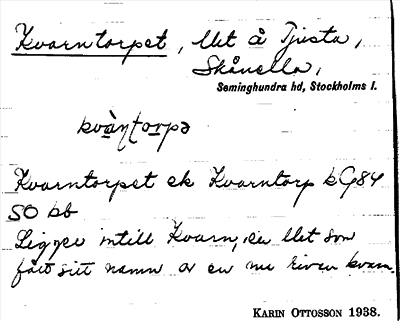 Kvarntorpet, llet å Tjusta,
Skånella,
Seminghundra hd, Stockholms l.
kvàṇto̱rpə
Kvarntorpet ek Kvarntorp kG84
SO bb
Ligger intill Kvarn, en llet som
fått sitt namn av en nu riven kvarn.
KARIN OTTOSSON 1938.